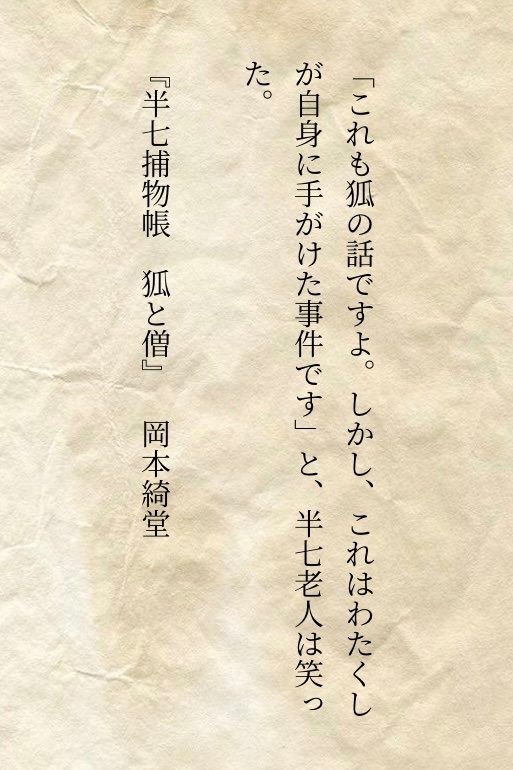 「これも狐の話ですよ。しかし、これはわたくし
が自身に手がけた事件です」と、半七老人は笑っ
た。
『半七捕物帳　狐と僧』　岡本綺堂